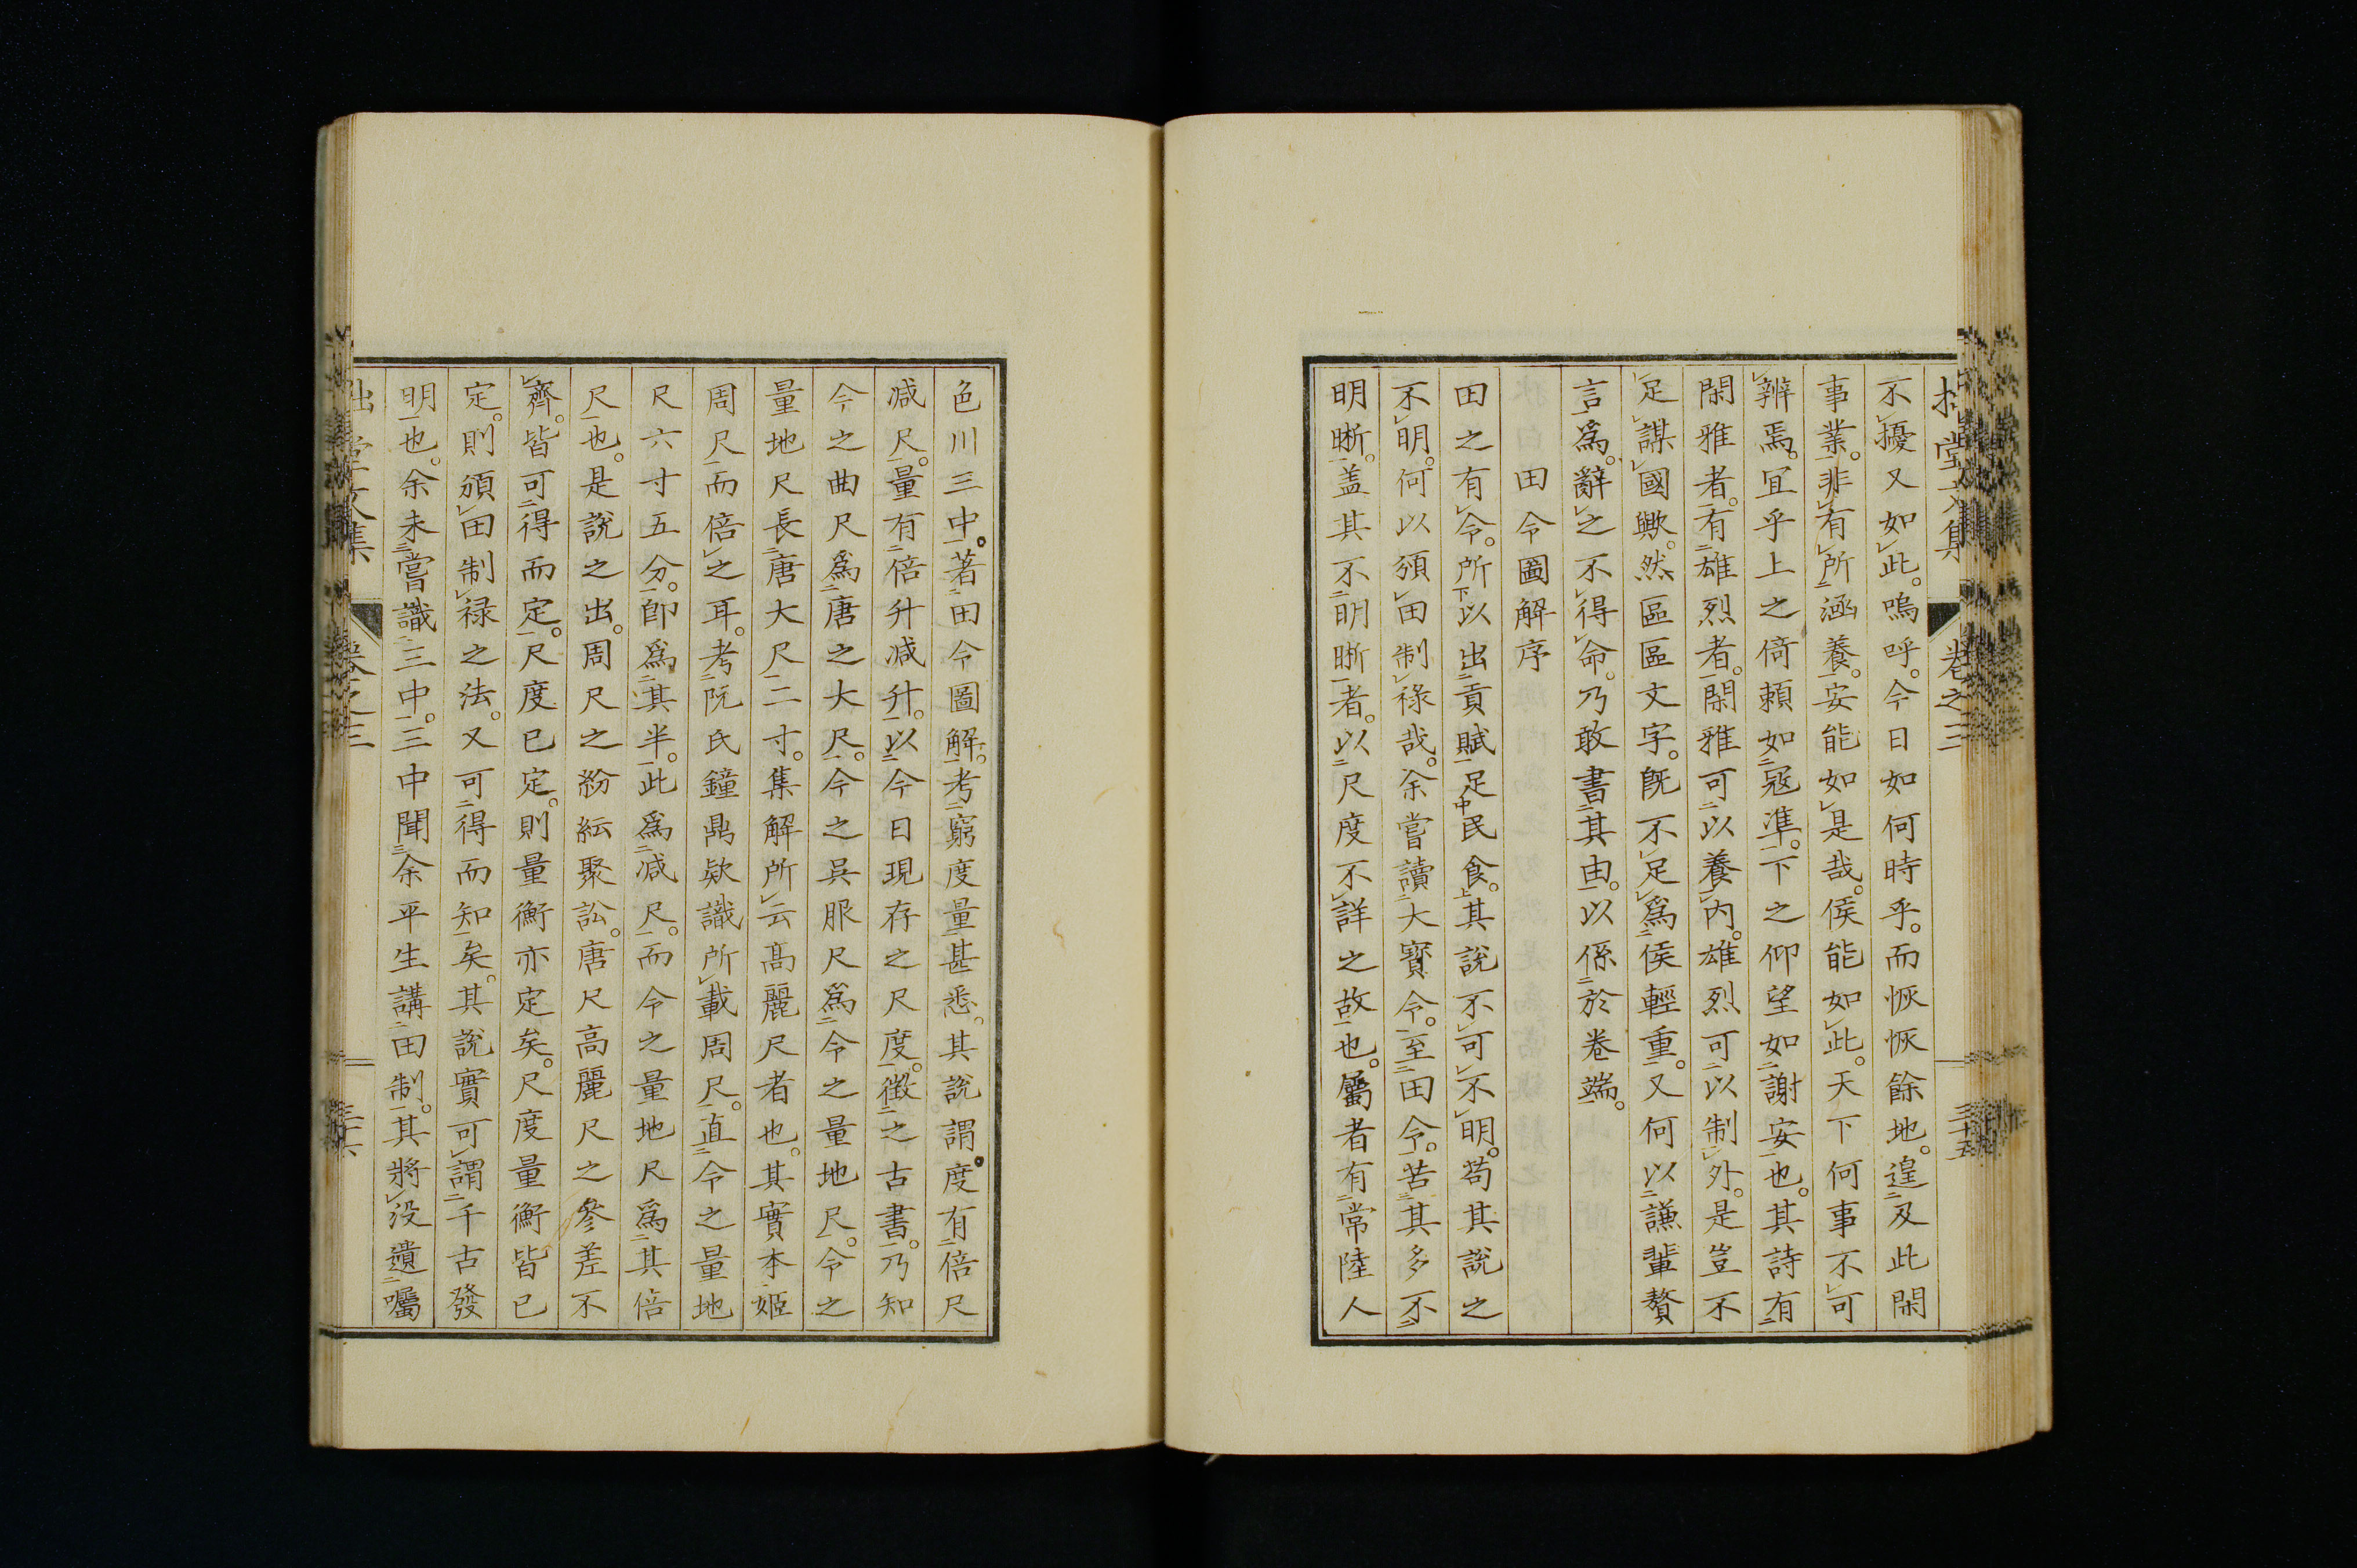 拙堂文集 卷之三 三十五
不擾又如此。嗚呼。今日如何時乎。而恢恢餘地。遑及此閑
事業。非有所涵養。安能如是哉。侯能如此。天下何事不可
辨焉。宜乎上之倚賴如寇準。下之仰望如謝安也。其詩有
閑雅者。有雄烈者。閑雅可以養內。雄烈可以制外。是豈不
足謀國歟。然區區文字。旣不足爲侯輕重。又何以謙輩贅
言爲。辭之不得命。乃敢書其由。以係於卷端。
田令圖解序
田之有令。所以出貢賦足民食。其說不可不明。苟其說之
不明。何以頒田制祿哉。余嘗讀大寶令。至田令。苦其多不
明晣。盖其不明晣者。以尺度不詳之故也。屬者有常陸人
色川三中。著田令圖解。考窮度量甚悉。其說謂。度有倍尺
减尺。量有倍升减升。以今日現存之尺度。徵之古書。乃知
今之曲尺爲唐之大尺。今之吳服尺爲今之量地尺。今之
量地尺長唐大尺二寸。集解所云高麗尺者也。其實本姬
周尺而倍之耳。考阮氏鐘鼎欵識所載周尺。直今之量地
尺六寸五分。卽爲其半。此爲减尺。而今之量地尺爲其倍
尺也。是說之出。周尺之紛紜聚訟。唐尺高麗尺之參差不
齊。皆可得而定。尺度已定。則量衡亦定矣。尺度量衡皆已
定。則頒田制祿之法。又可得而知矣。其說實可謂千古發
明也。余未嘗識三中。三中聞余平生講田制。其將沒遺囑
拙堂文集 卷之三 三十六